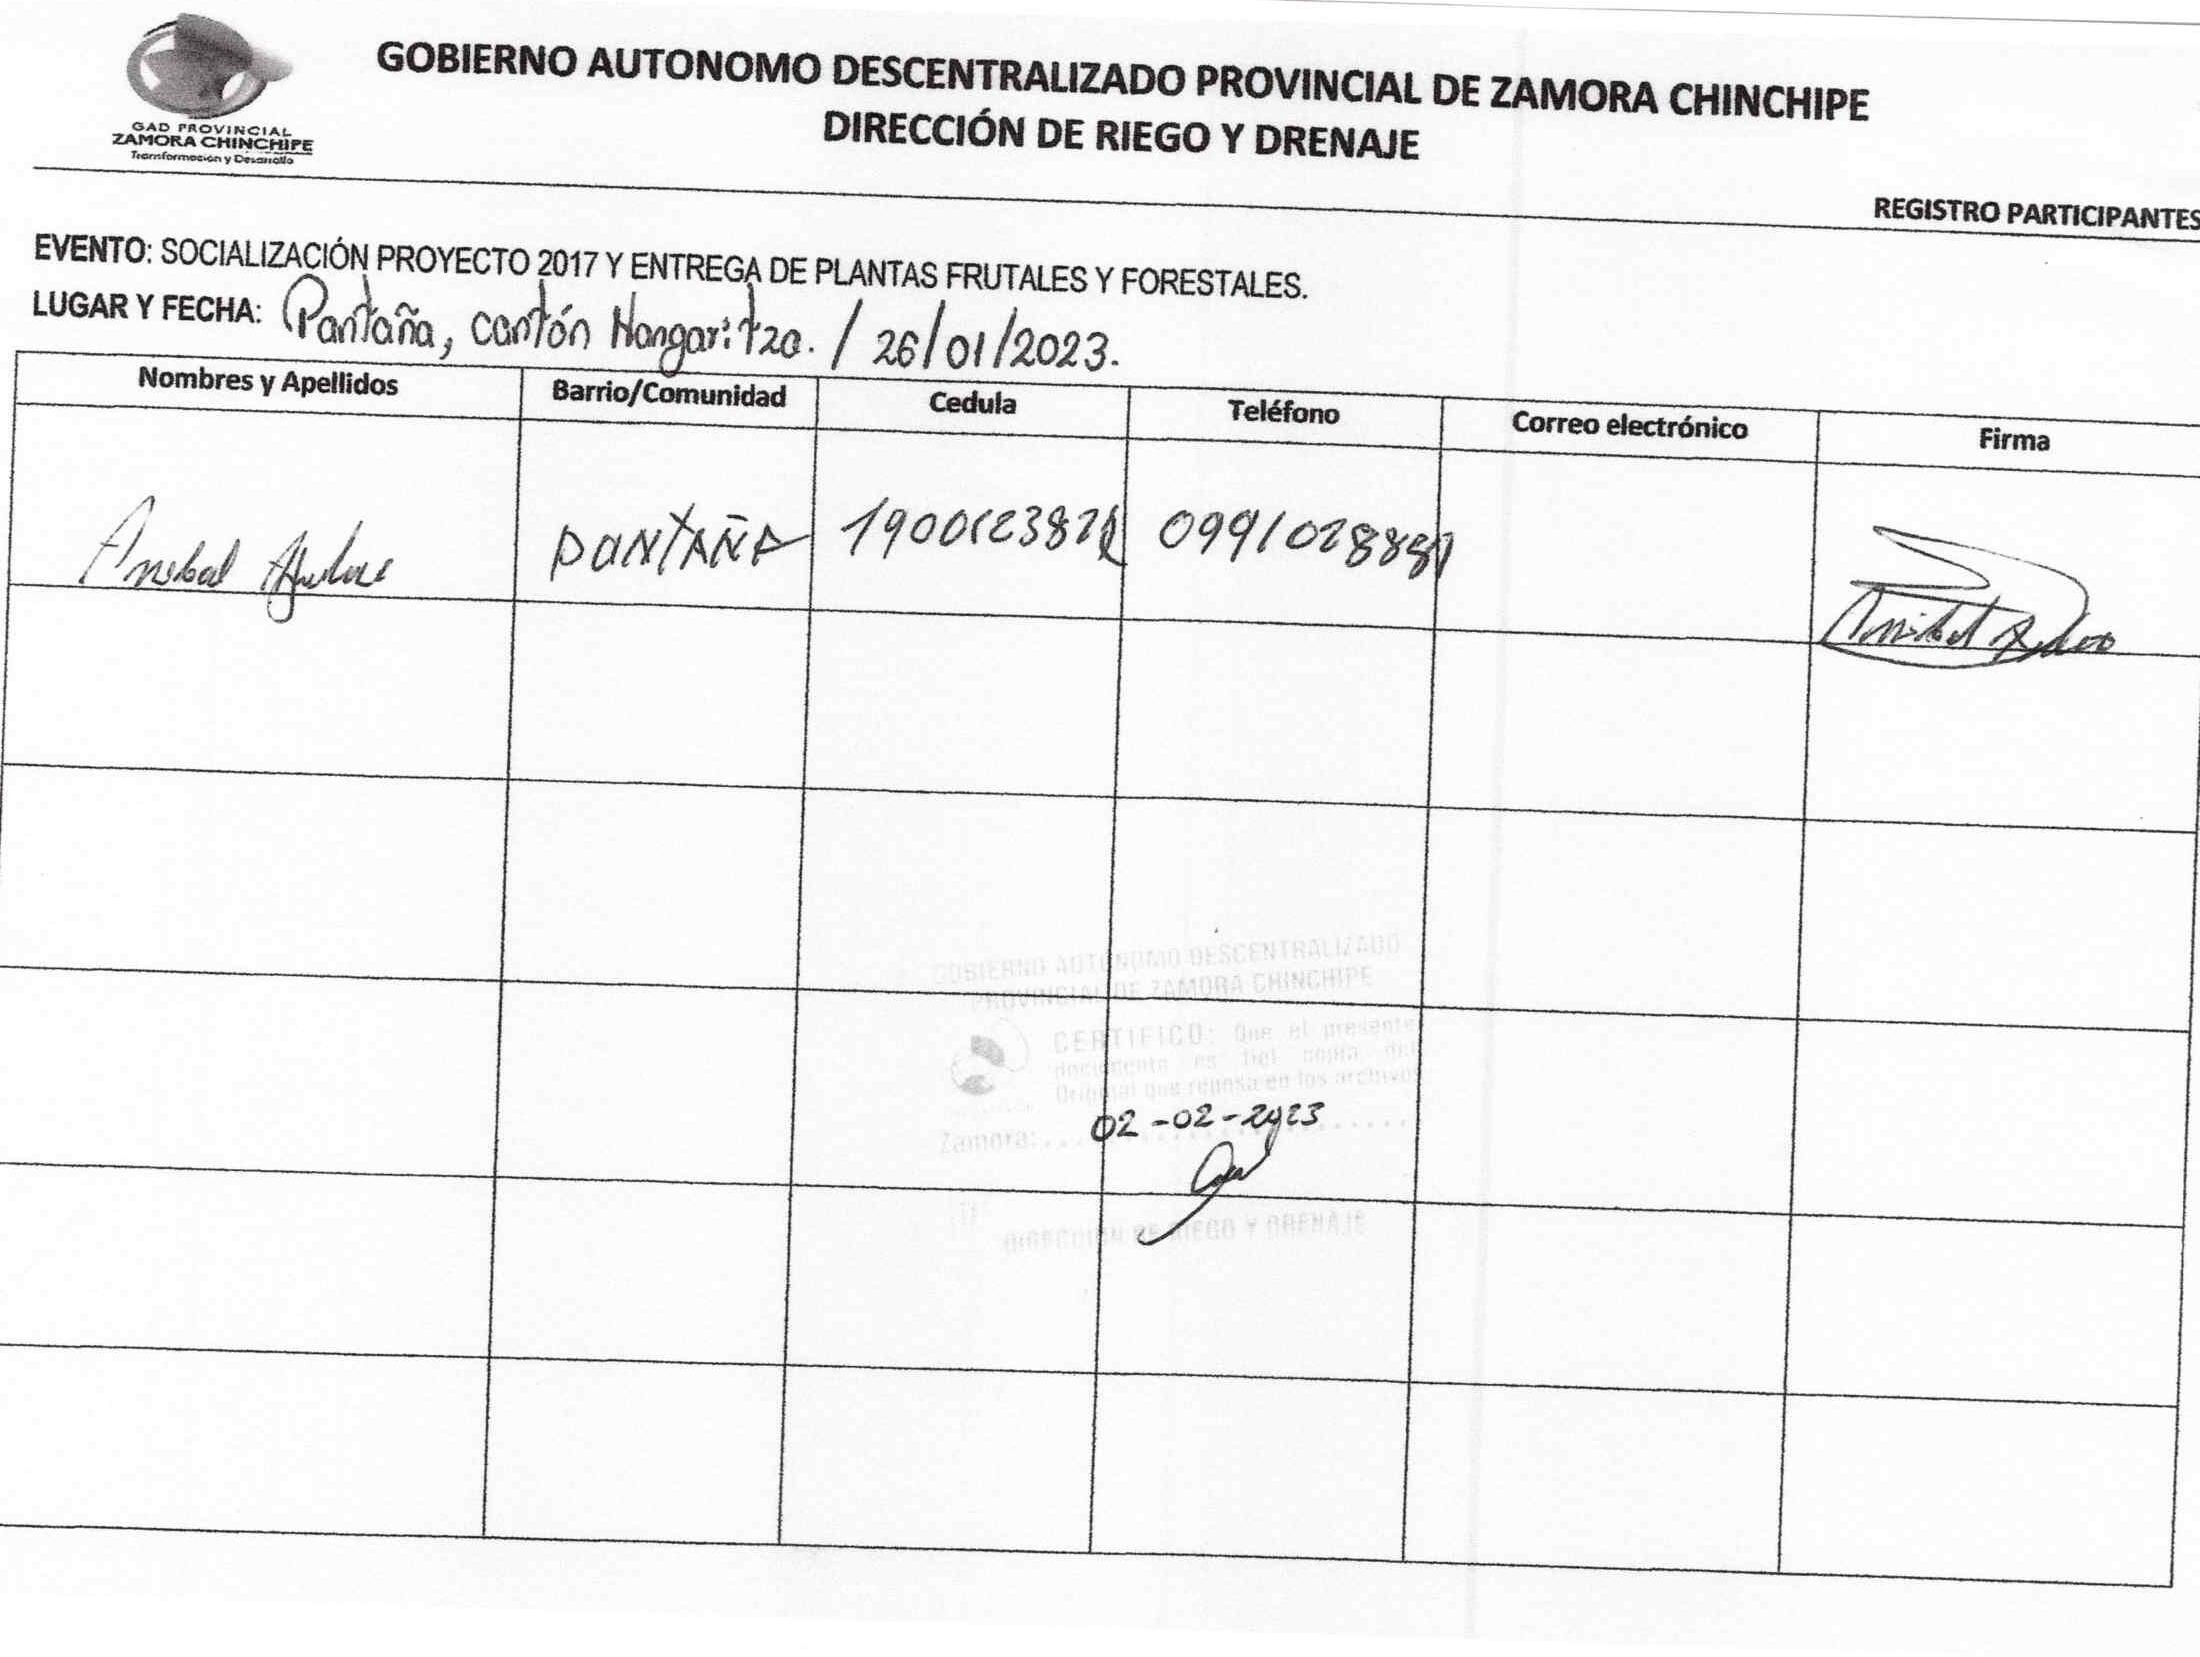 GAD PROVINCIAL
ZAMORA CHINCHIPE
Transformación y Desarrollo
GOBIERNO AUTONOMO DESCENTRALIZADO PROVINCIAL DE ZAMORA CHINCHIPE
DIRECCIÓN DE RIEGO Y DRENAJE
REGISTRO PARTICIPANTES
EVENTO: SOCIALIZACIÓN PROYECTO 2017 Y ENTREGA DE PLANTAS FRUTALES Y FORESTALES.
LUGAR Y FECHA: Pantaña, cantón Nangaritza. / 26/01/2023.
Nombres y Apellidos Barrio/Comunidad Cedula Teléfono Correo electrónico Firma
Anibal PANTAÑA
Anibal
GOBIERNO AUTÓNOMO DESCENTRALIZADO
PROVINCIAL DE ZAMORA CHINCHIPE
CERTIFICO: Que el presente
documento es fiel copia del
Original que reposa en los archivos
Zamora: 02-02-2023
DIRECCIÓN DE RIEGO Y DRENAJE